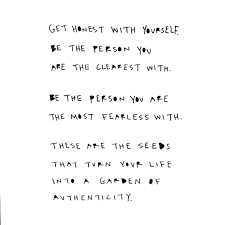 GET HONEST WITH YOURSELF.
BE THE PERSON YOU
ARE THE CLEAREST WITH.
BE THE PERSON YOU ARE
THE MOST FEARLESS WITH.
THESE ARE THE SEEDS
THAT TURN YOUR LIFE
INTO A GARDEN OF
AUTHENTICITY.